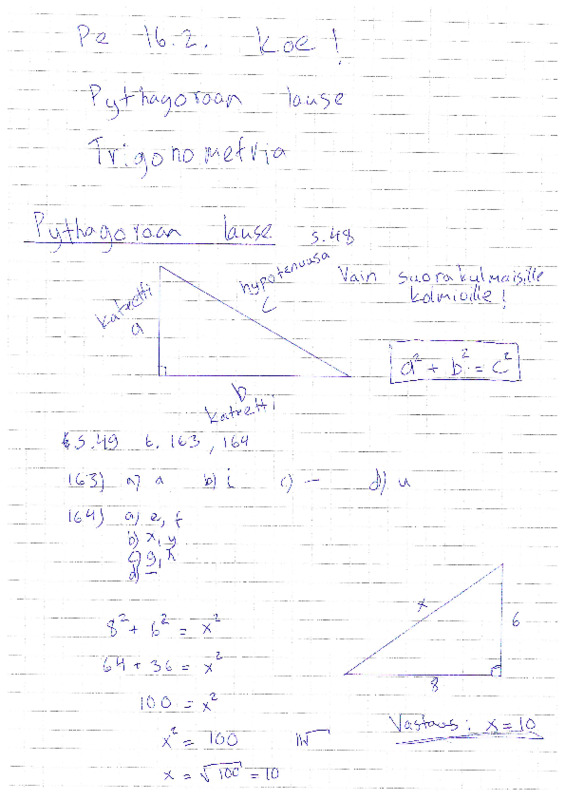 Pe 16.2. koe!
Pythagoraan lause
Trigonometria
Pythagoraan lause s.48
hypotenuusa
c
Vain suorakulmaisille
kolmioille!
katetti
a
a² + b² = c²
b
katetti
s.49 t. 163, 164
163) a) a b) i c) – d) u
164) a) e, f
b) x, y
c) g, h
d) –
x
6
8
8² + 6² = x²
64 + 36 = x²
100 = x²
x² = 100 ||√
x = √100 = 10
Vastaus: x = 10